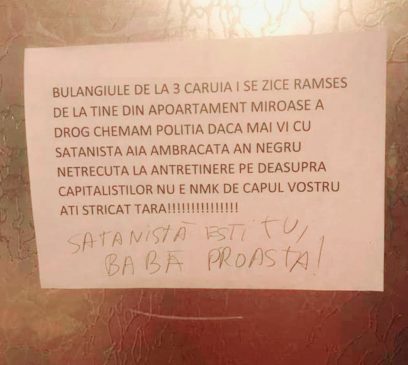 BULANGIULE DE LA 3 CARUIA I SE ZICE RAMSES
DE LA TINE DIN APOARTAMENT MIROASE A
DROG CHEMAM POLITIA DACA MAI VI CU
SATANISTA AIA AMBRACATA AN NEGRU
NETRECUTA LA ANTRETINERE PE DEASUPRA
CAPITALISTILOR NU E NMK DE CAPUL VOSTRU
ATI STRICAT TARA!!!!!!!!!!!!!!!
SATANISTĂ EȘTI TU,
BABĂ PROASTA!